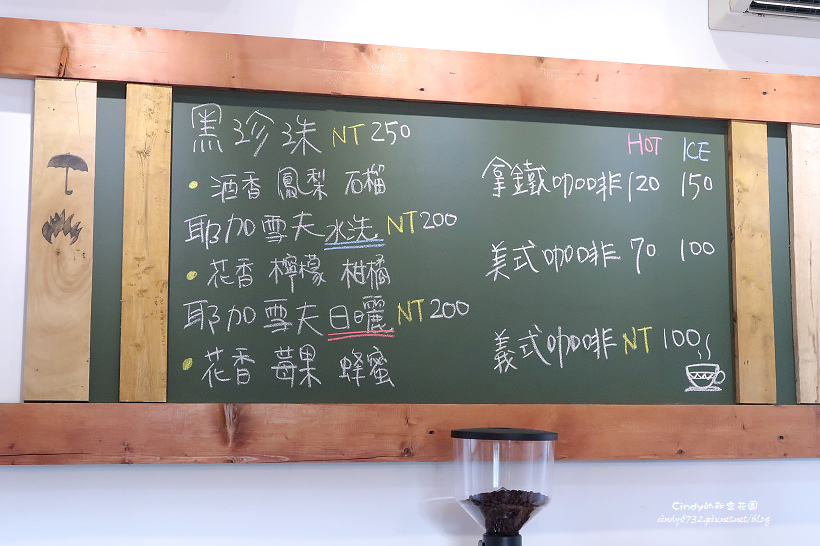 黑珍珠 NT 250
• 酒香 鳳梨 石榴
耶加雪夫水洗 NT200
• 花香 檸檬 柑橘
耶加雪夫日曬 NT200
• 花香 莓果 蜂蜜
HOT ICE
拿鐵咖啡 120 150
美式咖啡 70 100
義式咖啡 NT 100
cindy6732.pixnet.net/blog